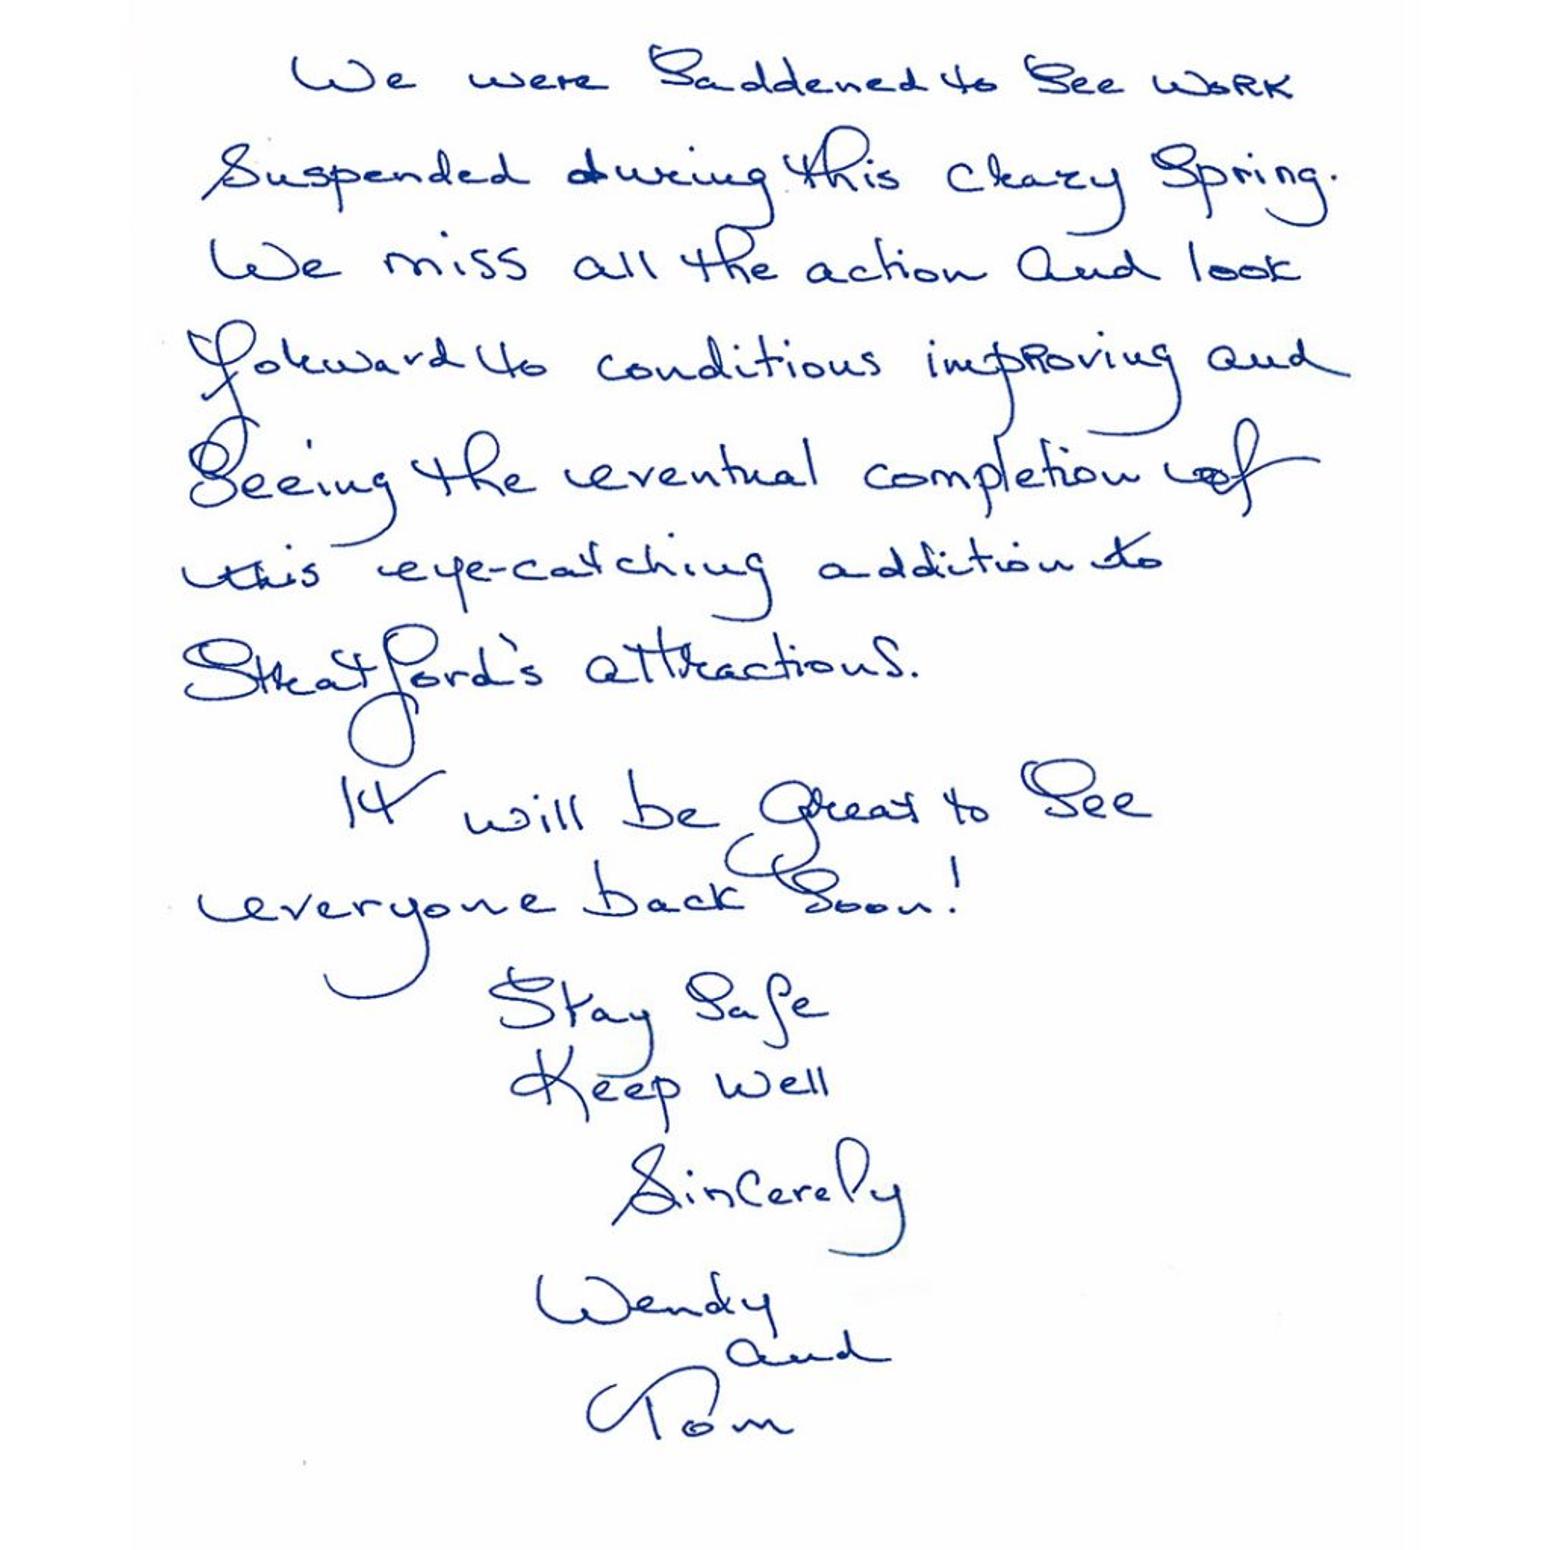 We were Saddened to See WORK
Suspended during this crazy Spring.
We miss all the action and look
forward to conditions improving and
Seeing the eventual completion of
this eye-catching addition to
Stratford's attractions.
It will be great to See
everyone back Soon!
Stay Safe
Keep Well
Sincerely
Wendy
and
Tom